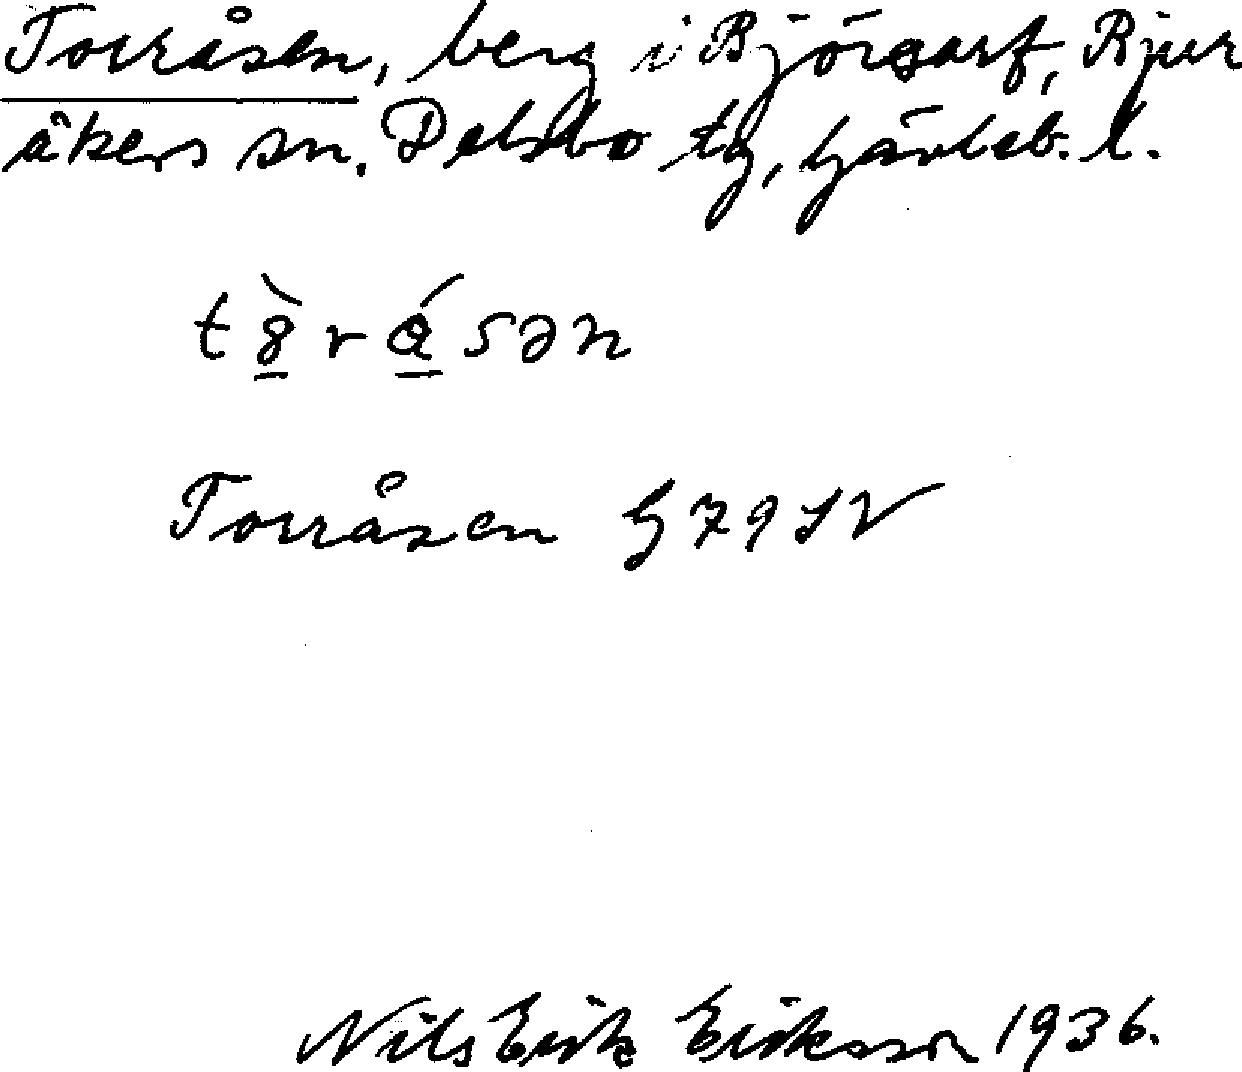 Torråsen, berg i Björsarf, Bjur
åkers sn, Delsbo tg, Gävleb. l.
Torråsen G 79 SV
Nils Erik Eriksson 1936.